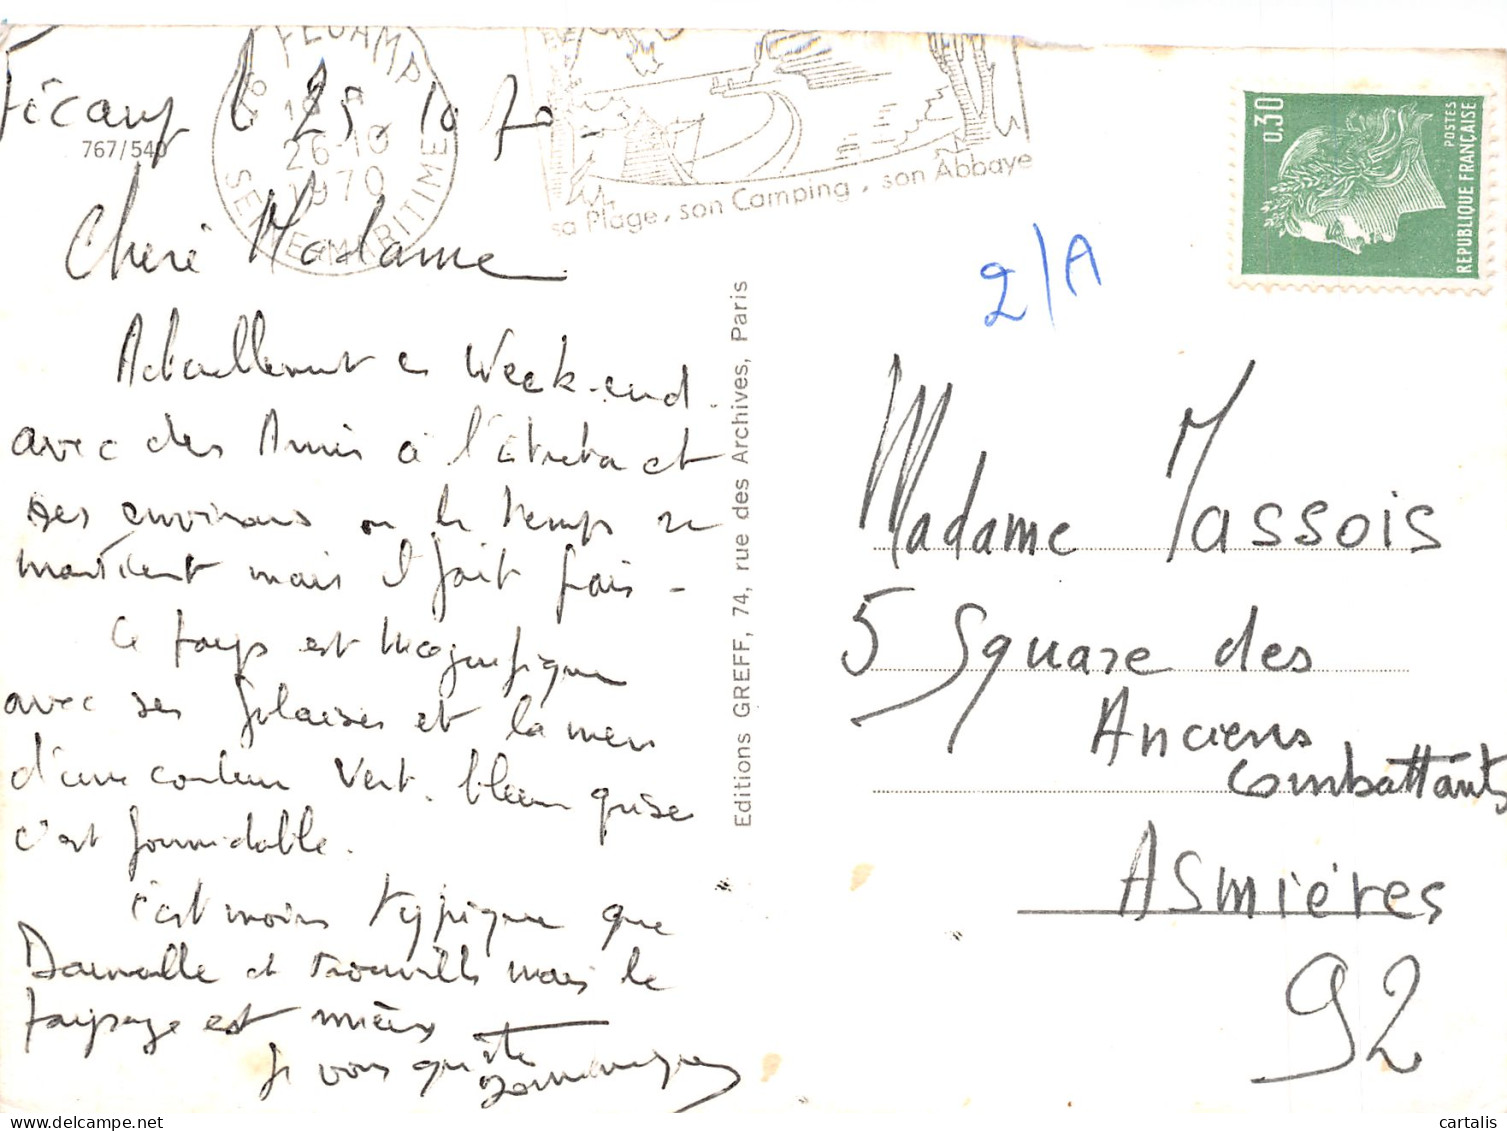 Fécamp le 25.10 70
767/540
FECAMP
26-10
1970
SEINE-MARITIME
sa Plage, son Camping, son Abbaye
0,30
POSTES
REPUBLIQUE FRANÇAISE
2/A
Chère Madame
Actuellement en Week-end
avec des Amis à et
ses environs ou le temps se
maintient mais il fait frais -
Ce pays est Magnifique
avec ses falaises et la mer
d'une couleur Vert. bleu grise
c'est formidable.
C'est moins typique que
Deauville et Trouville mais le
paysage est mieux
Je vous quitte
Dominique
Editions GREFF, 74, rue des Archives, Paris
Madame Massois
5 Square des
Anciens
Combattants
ASmières
92
cartalis